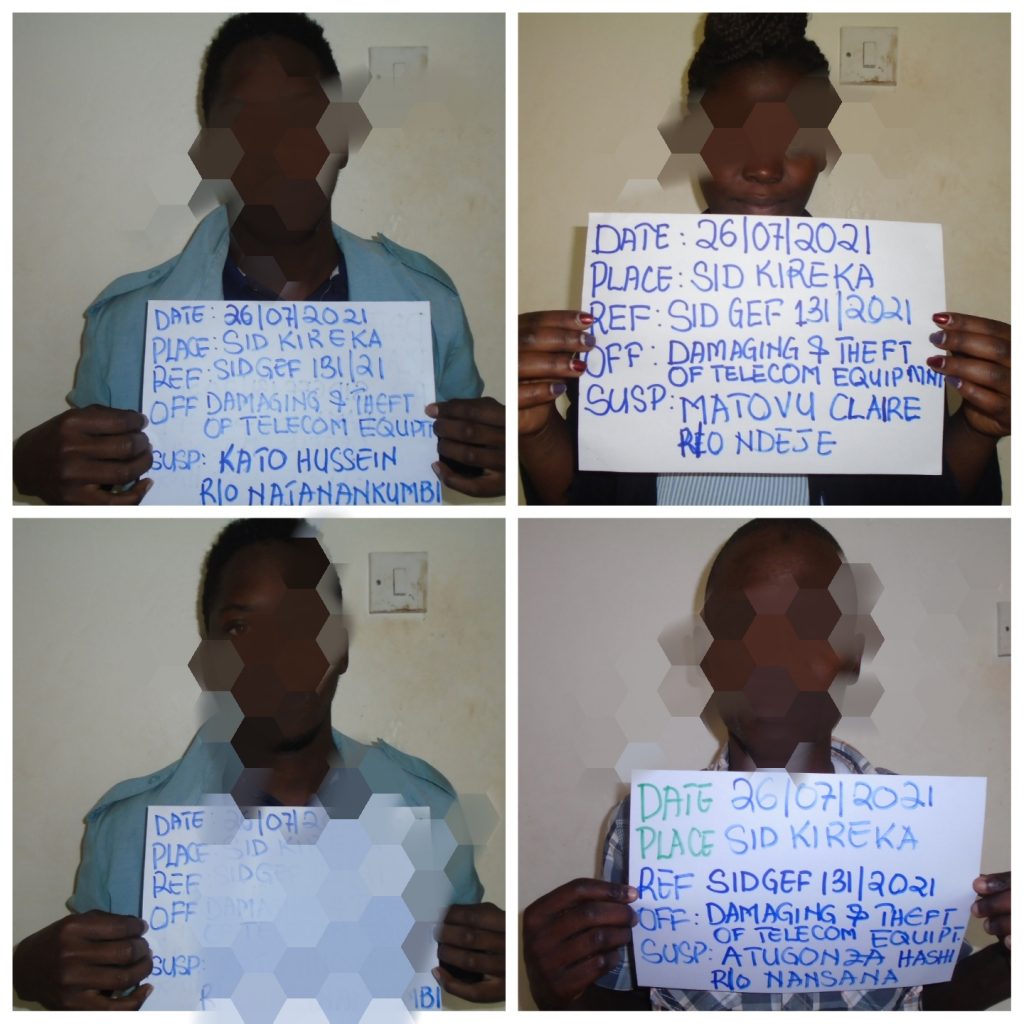 DATE: 26/07/2021
PLACE: SID KIREKA
REF: SIDGEF 131/21
OFF DAMAGING & THEFT
OF TELECOM EQUPT
SUSP: KATO HUSSEIN
R/O NATANANKUMBI
DATE: 26/07/2021
PLACE: SID KIREKA
REF: SID GEF 131/2021
OFF: DAMAGING & THEFT
OF TELECOM EQUIPMNT
SUSP: MATOVU CLAIRE
R/O NDEJE
DATE: 26/07/2
PLACE SID K
REF SIDGEF
OFF DAMA
SUSP:
R
DATE 26/07/2021
PLACE SID KIREKA
REF SIDGEF 131/2021
OFF: DAMAGING & THEFT
OF TELECOM EQUIPT.
SUSP: ATUGONZA HASHI
R/O NANSANA